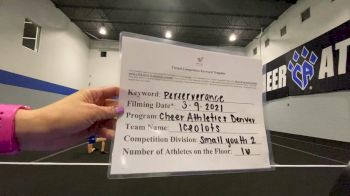 Virtual Competition Keyword Template
Keyword: Perserverance
Filming Date: 3-9-2021
Program: Cheer Athletics Denver
Team Name: Iceolots
Competition Division: Small youth 2
Number of Athletes on the Floor:
CHEER
AT
CA